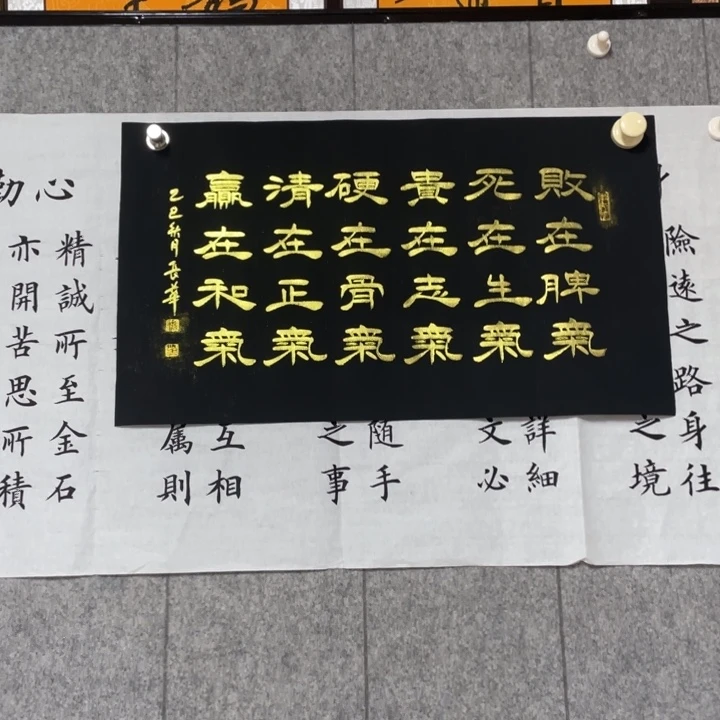 敗在脾氣
死在生氣
貴在志氣
硬在骨氣
清在正氣
贏在和氣
乙巳秋月長華
險遠之路身往
之境
詳細
文必
隨手
之事
互相
属則
心
精誠所至金石
勤
亦開苦思所積